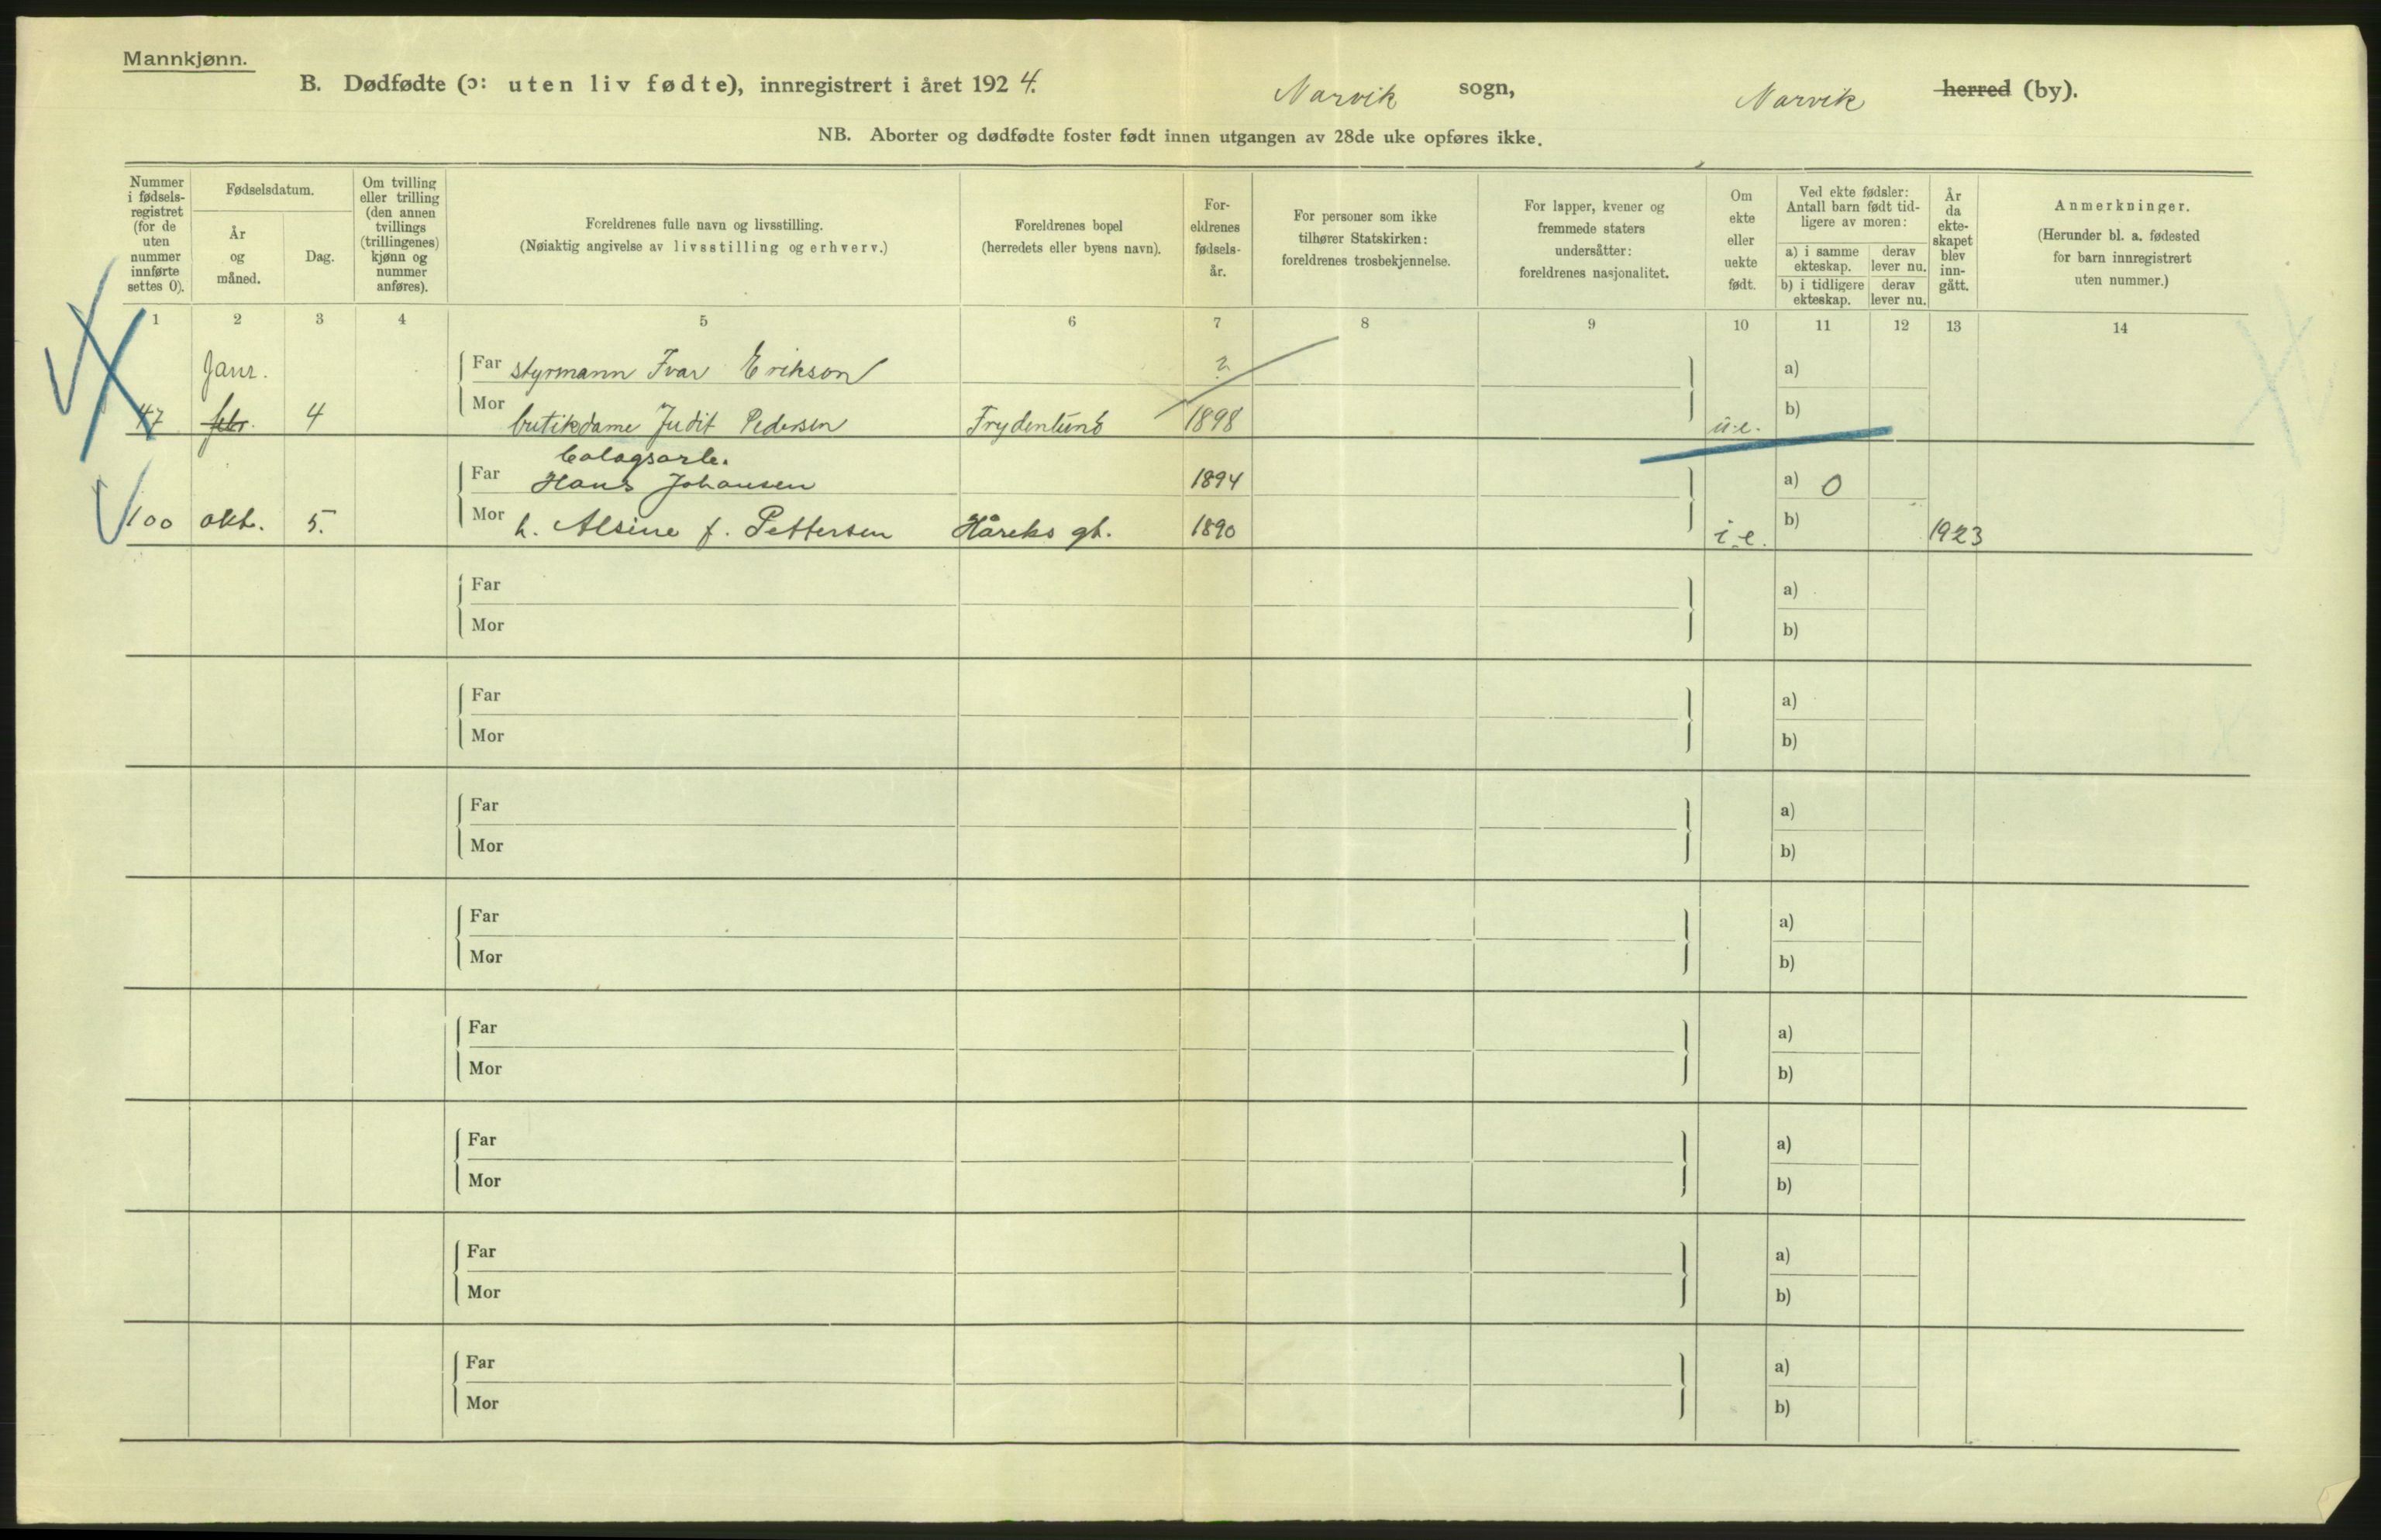 Mannkjønn.
B. Dødfødte (ɔ: uten liv fødte), innregistrert i året 1924. Narvik sogn, Narvik herred (by).
NB. Aborter og dødfødte foster født innen utgangen av 28de uke opføres ikke.
Nummer i fødselsregistret (for de uten nummer innførte settes 0).
Fødselsdatum.
År og måned.
Dag.
Om tvilling eller trilling (den annen tvillings (trillingenes) kjønn og nummer anføres).
Foreldrenes fulle navn og livsstilling.
(Nøiaktig angivelse av livsstilling og erhverv.)
Foreldrenes bopel
(herredets eller byens navn).
Foreldrenes fødselsår.
For personer som ikke tilhører Statskirken: foreldrenes trosbekjennelse.
For lapper, kvener og fremmede staters undersåtter: foreldrenes nasjonalitet.
Om ekte eller uekte født.
Ved ekte fødsler: Antall barn født tidligere av moren:
a) i samme ekteskap.
derav lever nu.
b) i tidligere ekteskap.
derav lever nu.
År da ekteskapet blev inngått.
Anmerkninger.
(Herunder bl. a. fødested for barn innregistrert uten nummer.)
1 2 3 4 5 6 7 8 9 10 11 12 13 14
Janr. Far styrmann Ivar Erikson ? a)
47 febr. 4 Mor butikdame Judit Pedersen Frydenlund 1898 u.e. b)
bolagsarb.
Far Hans Johansen 1894 a) 0
100 okt. 5. Mor h. Alsine f. Pettersen Håreks gt. 1890 i.e. b) 1923
Far a)
Mor b)
Far a)
Mor b)
Far a)
Mor b)
Far a)
Mor b)
Far a)
Mor b)
Far a)
Mor b)
Far a)
Mor b)
Far a)
Mor b)